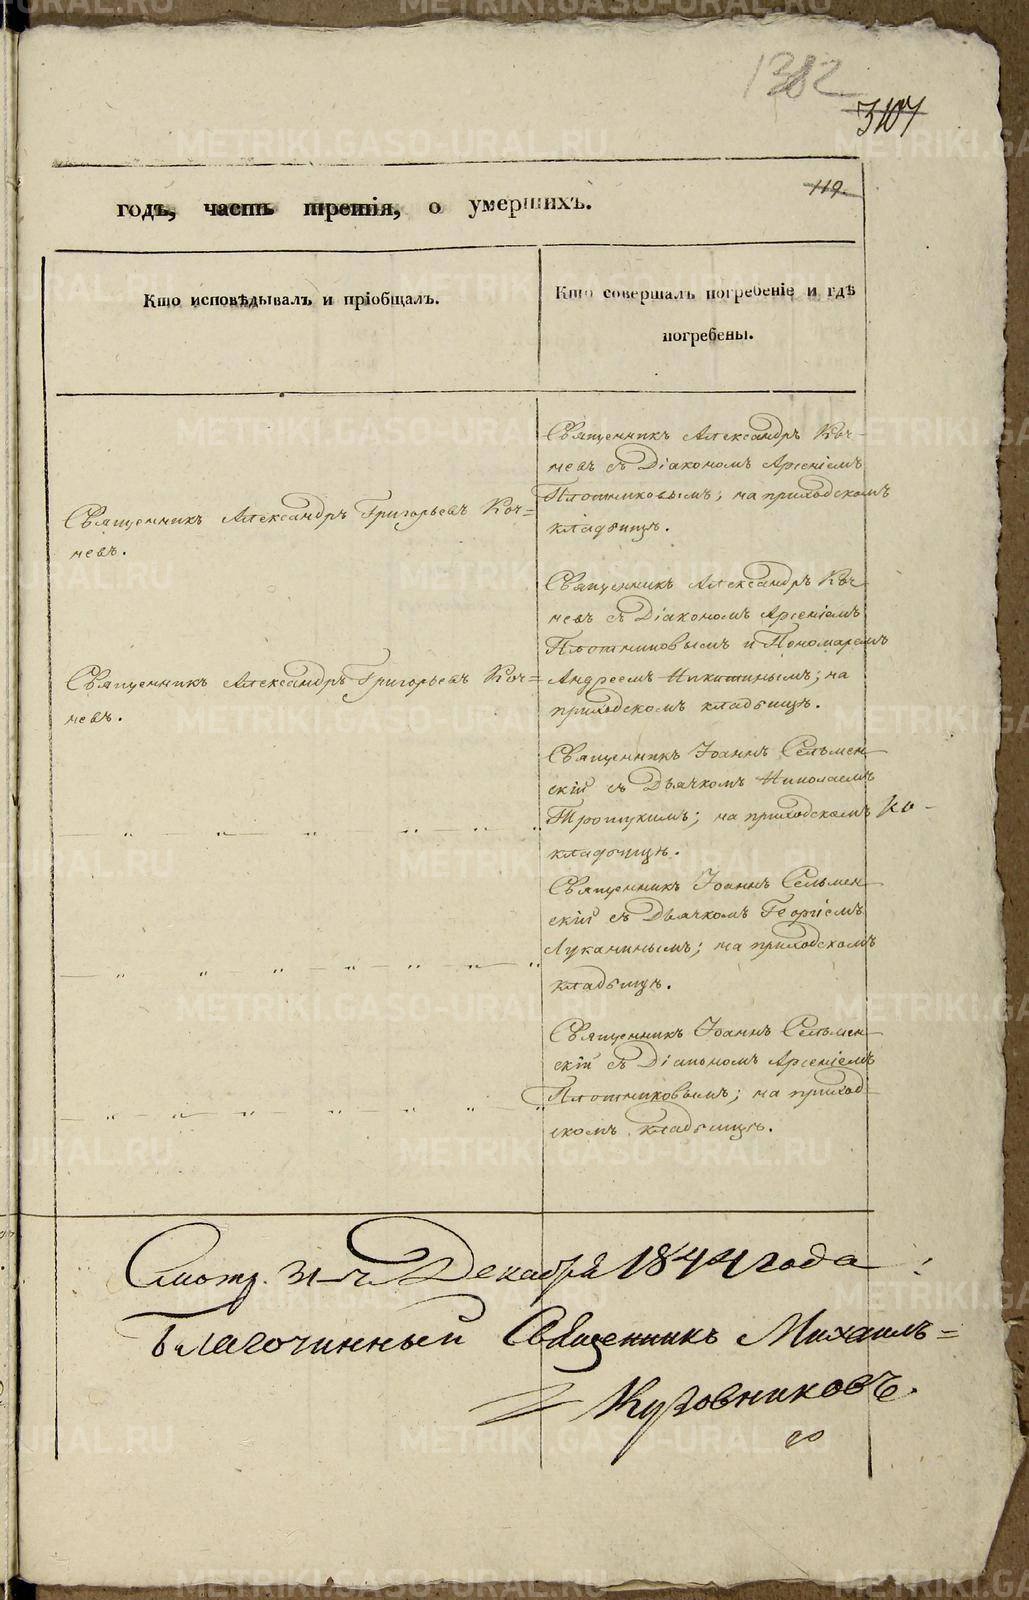 1382
3107
119.
годъ, часть третія, о умершихъ.
Кто исповѣдывалъ и пріобщалъ.
Кто совершалъ погребеніе и гдѣ
погребены.
Священникъ Александръ Григорьевъ Коч=
невъ.
Священникъ Александръ Коч-
невъ съ Діакономъ Арсеніемъ
Плотниковымъ; на приходскомъ
кладбищѣ.
Священникъ Александръ Григорьевъ Коч=
невъ.
Священникъ Александръ Коч-
невъ съ Діакономъ Арсеніемъ
Плотниковымъ и Пономаремъ
Андреемъ Никитинымъ; на
приходскомъ кладбищѣ.
Священникъ Іоаннъ Сельмен-
скій съ Дьячкомъ Николаемъ
Троицкимъ; на приходскомъ
кладбищѣ.
Священникъ Іоаннъ Сельмен-
скій съ Дьячкомъ Георгіемъ
Луканинымъ; на приходскомъ
кладбищѣ.
Священникъ Іоаннъ Сельмен-
скій съ Діакономъ Арсеніемъ
Плотниковымъ; на приход-
скомъ кладбищѣ.
Смотр. 31-г Декабря 1844 года
Благочинный Священникъ Михаилъ=
Кузовниковъ.
METRIKI.GASO-URAL.RU